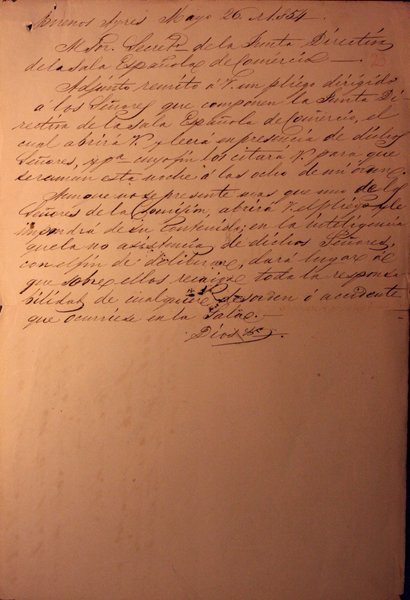 Buenos Ayres Mayo 26 de 1854.
Al Sor. Secreto. de la Junta Directiva
de la Sala Española de Comercio
Adjunto remito á V. un pliego dirigido
á los Señores que componen la Junta Di
rectiva de la Sala Española de Comercio, el
cual abrirá V. y leerá en presencia de dichos
Señores, y pa. cuyo fin los citará V. para que
se reunan esta noche á las ocho de
Aunque no se presente mas que uno de los
Señores de la Comision, abrirá V. el pliego
de su contenido; en la inteligencia
que la no asistencia de dichos Señores
con el fin de deliberar, dará lugar á
que sobre ellos recaiga toda la responsa
bilidad de cualquier desorden ó accidente
que ocurriese en la Sala.
Dios &c.